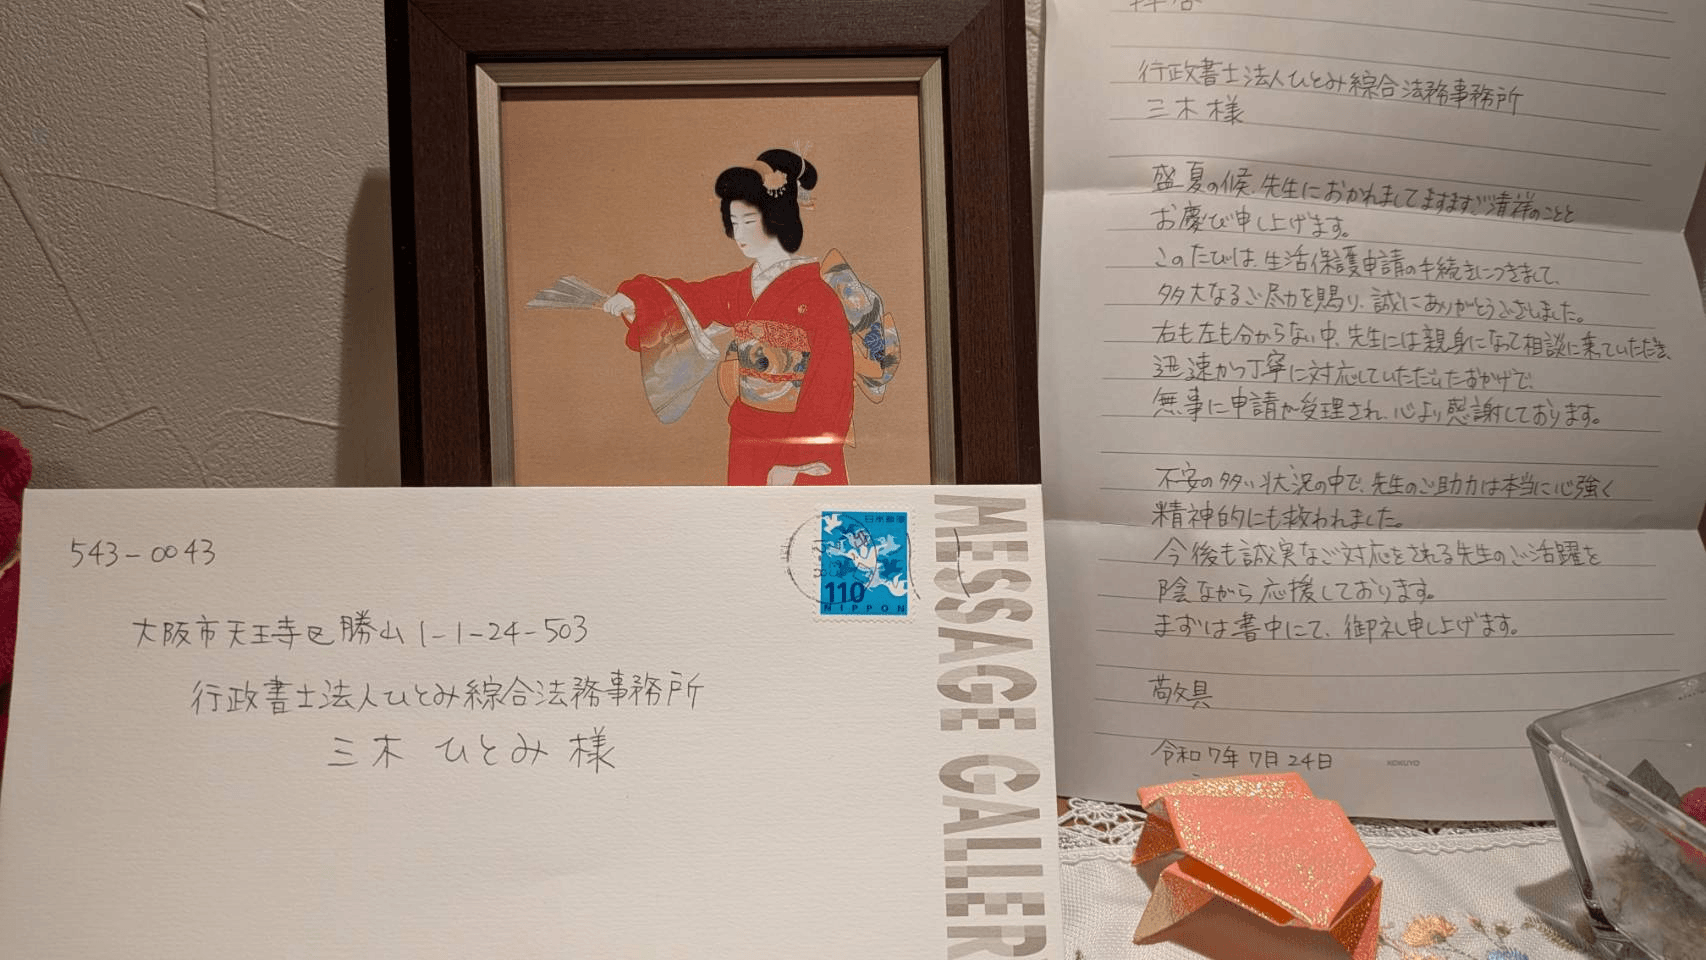 543-0043
大阪市天王寺区勝山1-1-24-503
行政書士法人ひとみ綜合法務事務所
三木 ひとみ 様
日本郵便
110
NIPPON
MESSAGE GALLER
行政書士法人ひとみ綜合法務事務所
三木様
盛夏の候、先生におかれましてますますご清祥のことと
お慶び申し上げます。
このたびは、生活保護申請の手続きにつきまして、
多大なるご尽力を賜り、誠にありがとうございました。
右も左も分からない中、先生には親身になって相談に来っていただき、
迅速かつ丁寧に対応していただいたおかげで、
無事に申請が受理され、心より感謝しております。
不安の多い状況の中で、先生のご助力は本当に心強く
精神的にも救われました。
今後も誠実なご対応をされる先生のご活躍を
陰ながら応援しております。
まずは書中にて、御礼申し上げます。
敬具
令和7年7月24日
KOKUYO